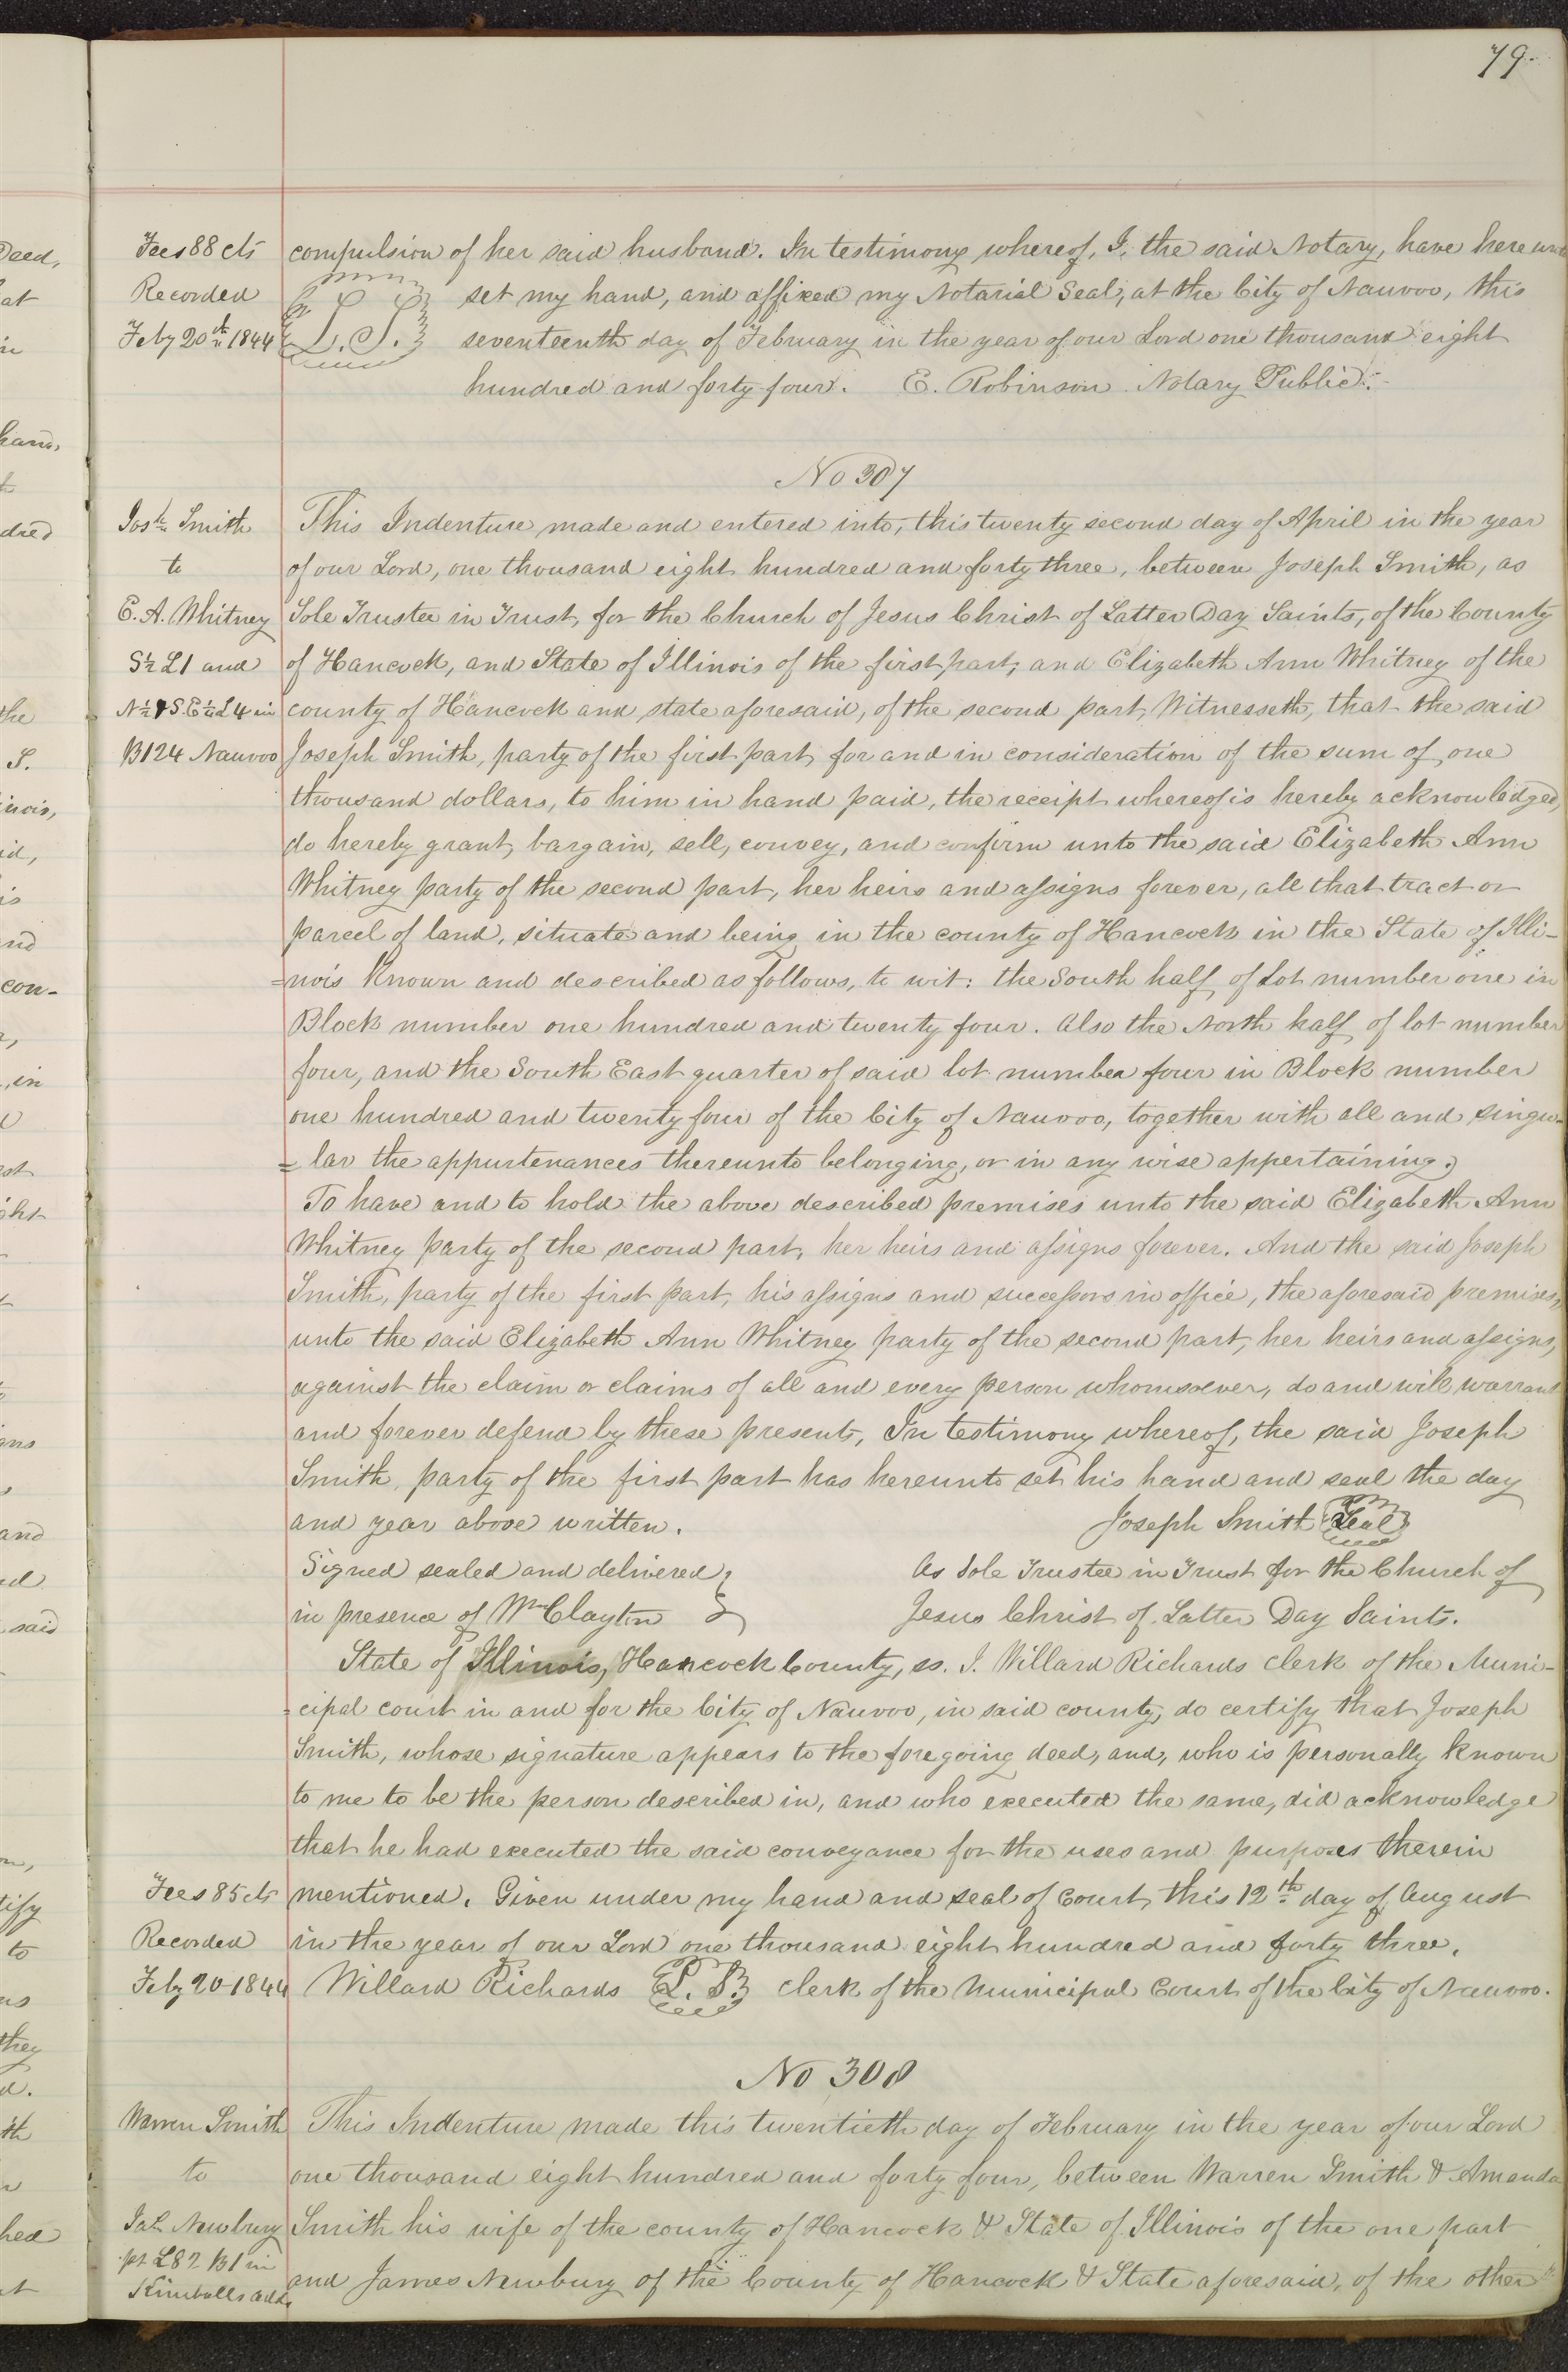 79.
Fees 88 cts compulsion of her said husband. In testimony whereof, I, the said Notary, have here unto
Recorded set my hand, and affixed my Notarial Seal, at the City of Nauvoo, this
Feby 20th 1844 L.S. seventeenth day of February in the year of our Lord one thousand eight
hundred and forty four. E. Robinson Notary Public.
No 307
Josh Smith This Indenture made and entered into, this twenty second day of April in the year
to of our Lord, one thousand eight hundred and forty three, between Joseph Smith, as
E. A. Whitney Sole Trustee in Trust, for the Church of Jesus Christ of Latter Day Saints, of the County
S½ L1 and of Hancock, and State of Illinois of the first part, and Elizabeth Ann Whitney of the
N½ & S.E¼ L4 in county of Hancock and state aforesaid, of the second part, Witnesseth, that the said
B124 Nauvoo Joseph Smith, party of the first part, for and in consideration of the sum of one
thousand dollars, to him in hand paid, the receipt whereof is hereby acknowledged,
do hereby grant, bargain, sell, convey, and confirm unto the said Elizabeth Ann
Whitney party of the second part, her heirs and assigns forever, all that tract or
parcel of land, situate and being in the county of Hancock in the State of Illi-
=nois Known and described as follows, to wit: the South half of Lot number one in
Block number one hundred and twenty four. Also the North half of lot number
four, and the South East quarter of said lot number four in Block number
one hundred and twenty four of the City of Nauvoo, together with all and singu-
=lar the appurtenances thereunto belonging, or in any wise appertaining.
To have and to hold the above described premises unto the said Elizabeth Ann
Whitney party of the second part, her heirs and assigns forever. And the said Joseph
Smith, party of the first part, his assigns and successors in office, the aforesaid premises,
unto the said Elizabeth Ann Whitney party of the second part, her heirs and assigns,
against the claim or claims of all and every person whomsoever, do and will warrant
and forever defend by these presents, In testimony whereof, the said Joseph
Smith, party of the first part has hereunto set his hand and seal the day
and year above written. Joseph Smith Seal
Signed sealed and delivered } As Sole Trustee in Trust for the Church of
in presence of Wm Clayton } Jesus Christ of Latter Day Saints.
State of Illinois, Hancock County, ss. I. Willard Richards clerk of the Muni-
=cipal court in and for the City of Nauvoo, in said county, do certify that Joseph
Smith, whose signature appears to the foregoing deed, and, who is personally known
to me to be the person described in, and who executed the same, did acknowledge
that he had executed the said conveyance for the uses and purposes therein
Fees 85 cts mentioned. Given under my hand and seal of Court, this 12th day of August
Recorded in the year of our Lord one thousand eight hundred and forty three.
Feby 20 1844 Willard Richards L.S. clerk of the Municipal Court of the City of Nauvoo.
No 308
Warren Smith This Indenture made this twentieth day of February in the year of our Lord
to one thousand eight hundred and forty four, between Warren Smith & Amanda
Jas Newbury Smith his wife of the county of Hancock & State of Illinois of the one part
pt L82 B1 in and James Newbury of the County of Hancock & State aforesaid, of the other
Kimballs add.